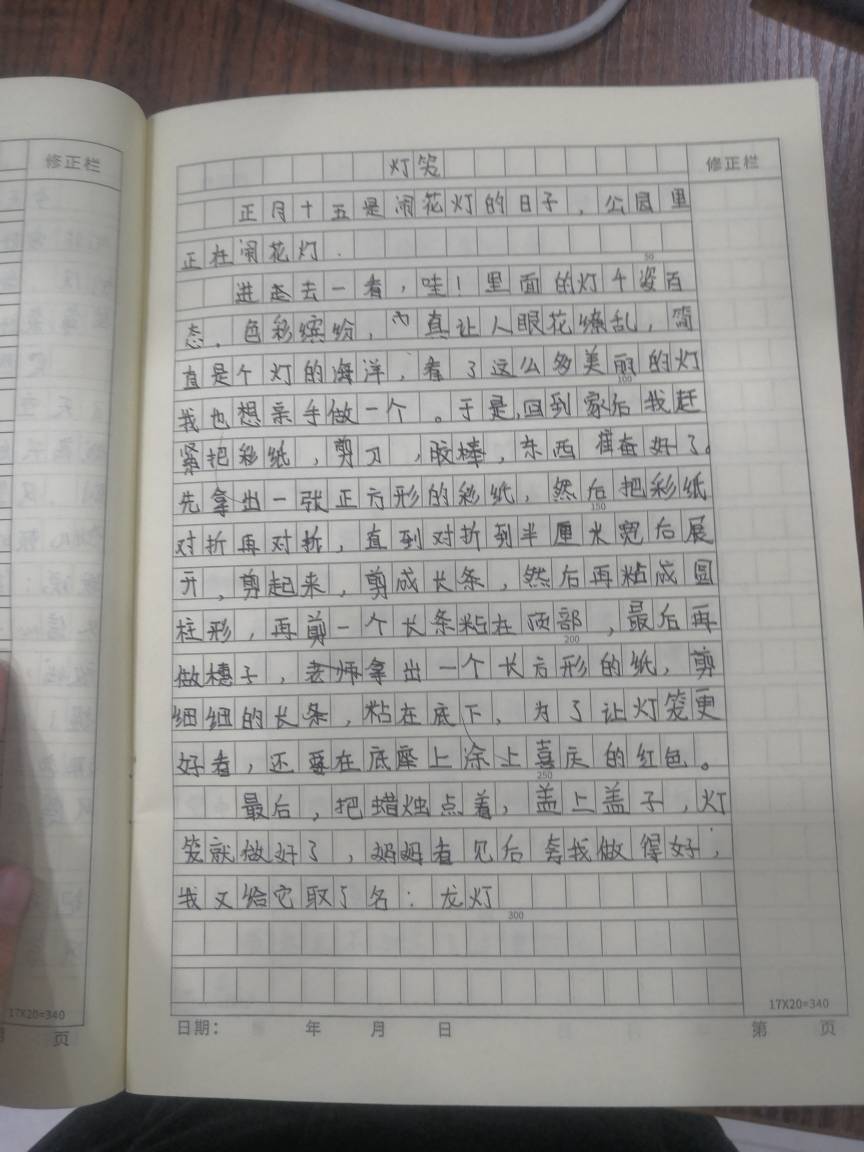 修正栏
灯笼
修正栏
正月十五是闹花灯的日子，公园里
正在闹花灯．
50
进去一看，哇！里面的灯千姿百
态．色彩缤纷，真让人眼花缭乱，简
直是个灯的海洋，看了这么多美丽的灯
100
我也想亲手做一个。于是，回到家后我赶
紧把彩纸，剪刀，胶棒，东西准备好了。
先拿出一张正方形的彩纸，然后把彩纸
150
对折再对折，直到对折到半厘米宽后展
开，剪起来，剪成长条，然后再粘成圆
柱形，再剪一个长条粘在顶部，最后再
200
做穗子，老师拿出一个长方形的纸，剪
细细的长条，粘在底下，为了让灯笼更
好看，还要在底座上涂上喜庆的红色。
250
最后，把蜡烛点着，盖上盖子，灯
笼就做好了，妈妈看见后夸我做得好，
我又给它取了名：龙灯
300
17X20=340
17X20=340
页
日期： 年 月 日 第 页